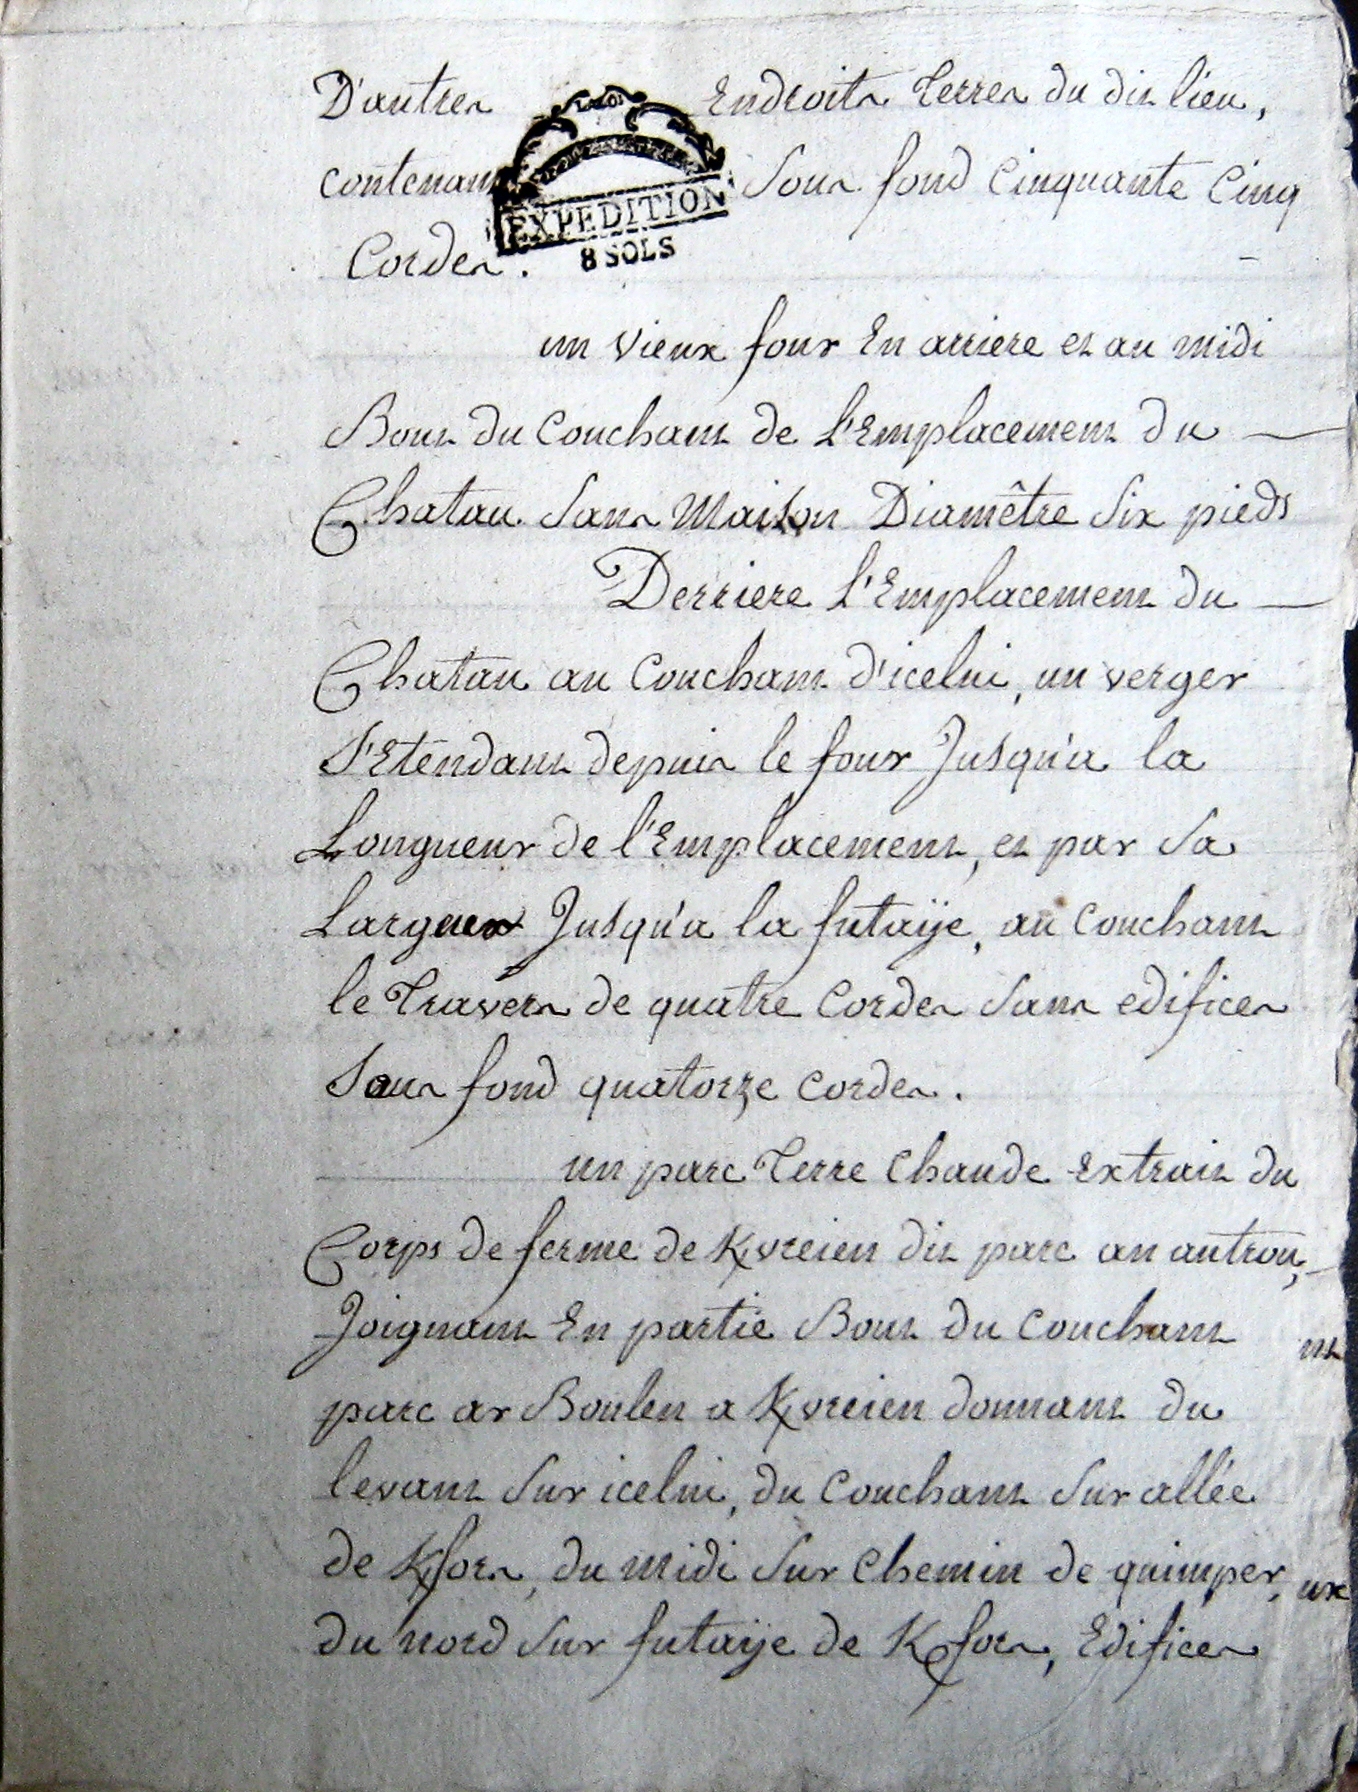 D'autres Endroits Terres du dit lieu,
LA LOI
contenant sous fond Cinquante Cinq
EXPEDITION
Cordes.
8 SOLS
un vieux four En arriere et au midi
Bout du Couchant de L'Emplacement du
Chatau sans Maison Diamêtre six pieds
Derriere L'Emplacement du
Chatau au Couchant d'icelui, un verger
S'Etendant depuis le four Jusqu'a la
Longueur de l'Emplacement, et par sa
Largeur Jusqu'a la futaÿe, au Couchant
le Travers de quatre Cordes sans edifices
Sous fond quatorze cordes.
un parc Terre Chaude Extrait du
Corps de ferme de Kvreien dit parc an autrou,
Joignant En partie Bout du Couchant
parc ar Boulen a Kvreien donnant du
levant sur icelui, du Couchant sur allée
de Kfors, du midi sur Chemin de quimper,
du nord sur futaÿe de Kfors, Edifices